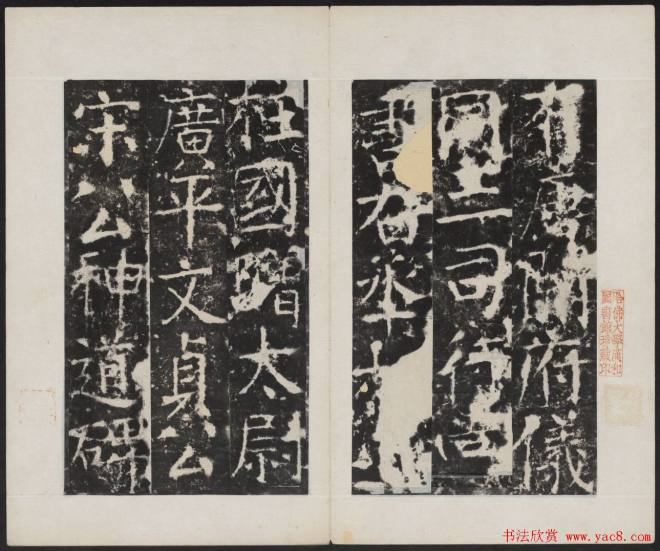 有唐開府儀
同三司行尚
書右丞
柱國贈太尉
廣平文貞公
宋公神道碑
哈佛大學漢和
圖書館珍藏印
书法欣赏 www.yac8.com